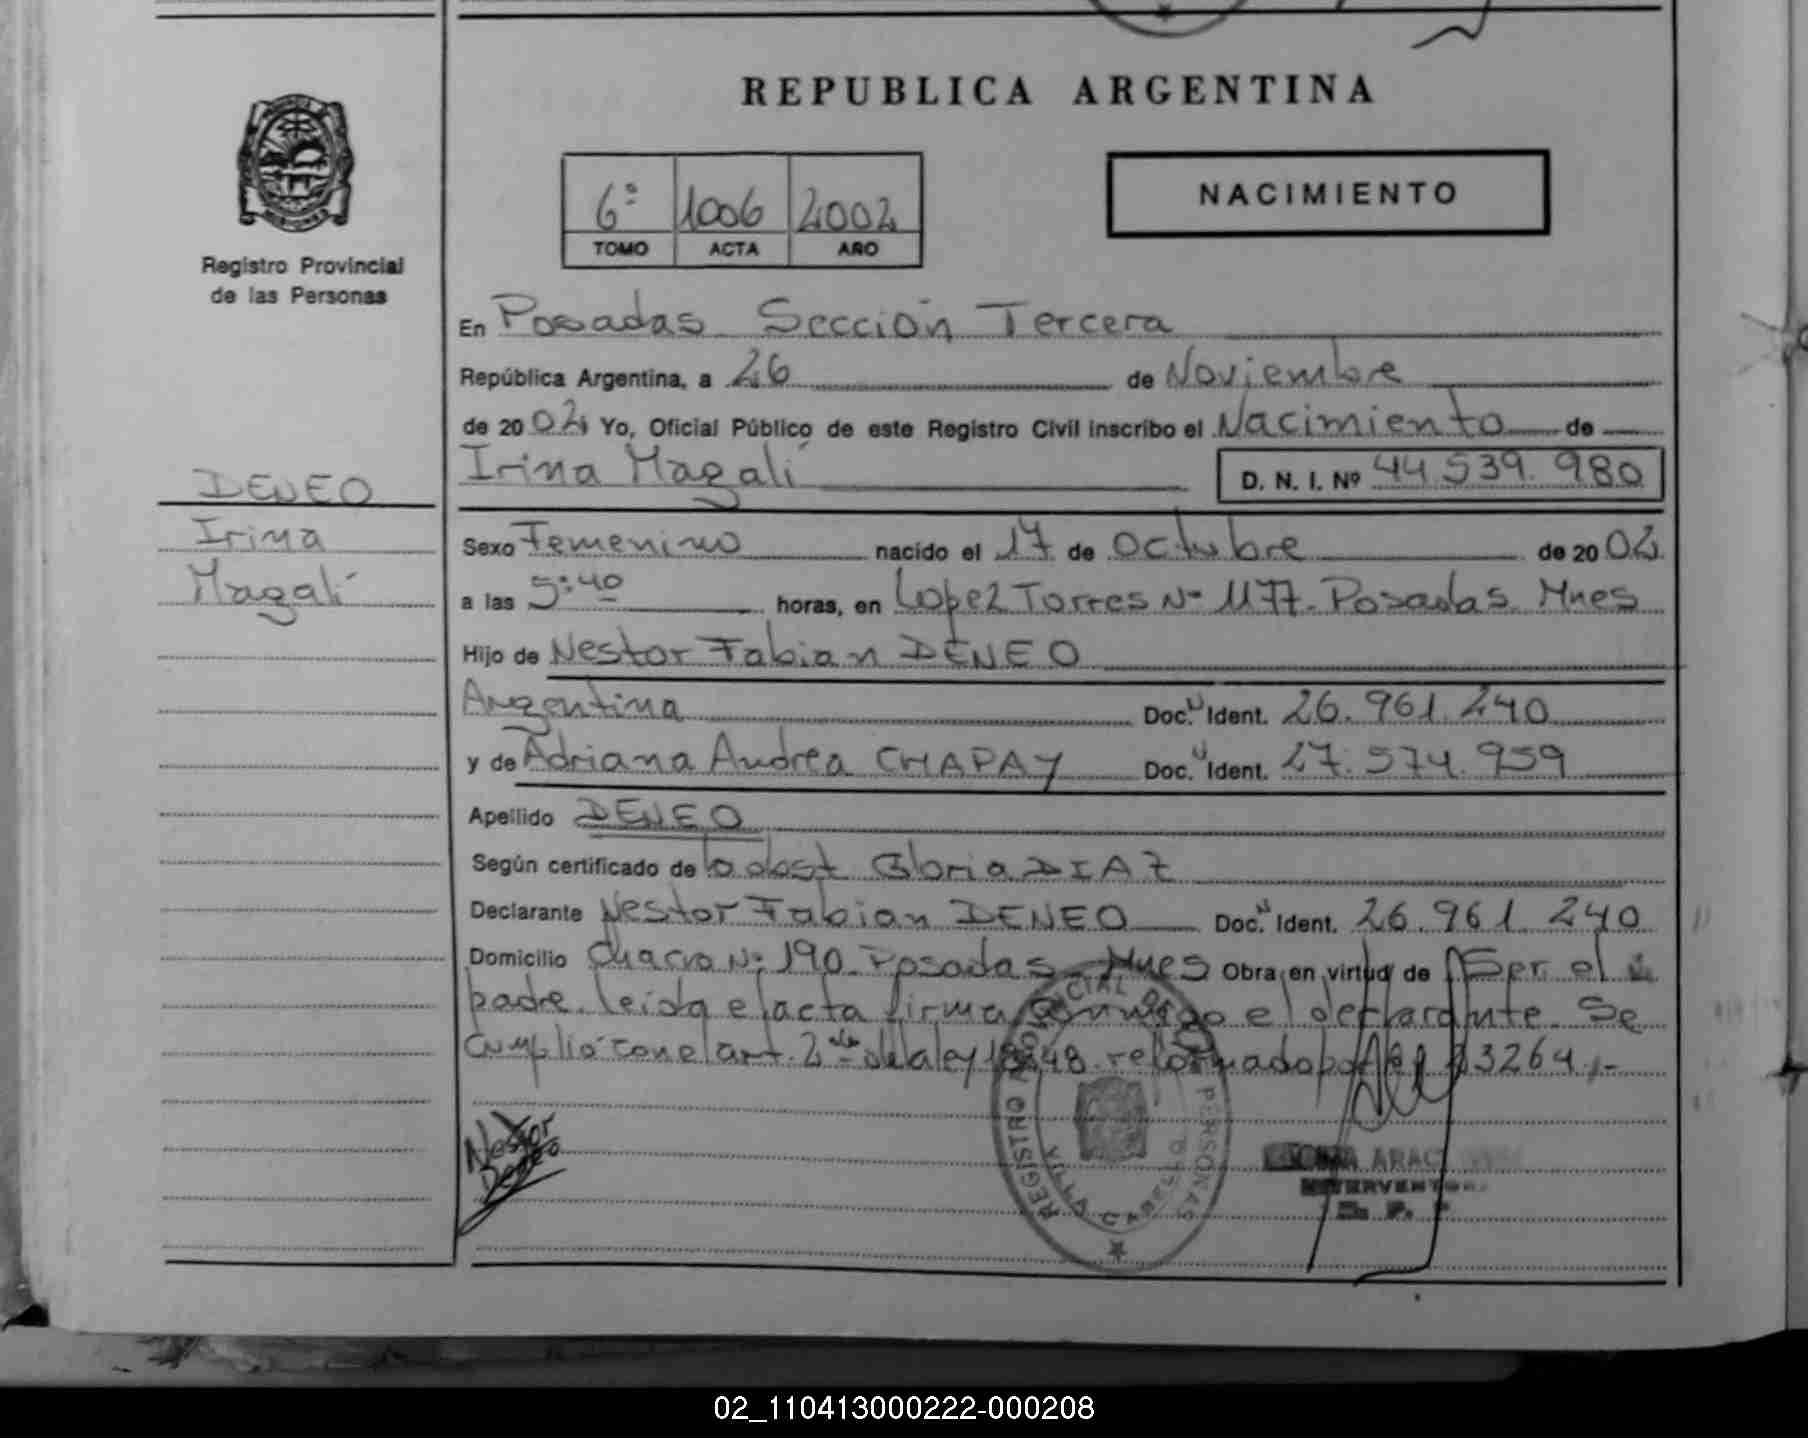 REPUBLICA ARGENTINA
NACIMIENTO
6º 1006 2002
TOMO ACTA AÑO
Registro Provincial
de las Personas
En Posadas Sección Tercera
República Argentina, a 26 de Noviembre
de 2002 Yo, Oficial Público de este Registro Civil inscribo el Nacimiento de
Irina Magalí D. N. I. Nº 44.539.980
DENEO
Irina
Magalí
Sexo Femenino nacido el 17 de Octubre de 2002
a las 5:40 horas, en Lopez Torres Nº 1177. Posadas. Mnes
Hijo de Nestor Fabian DENEO
Argentina Doc. Ident. 26.961.240
y de Adriana Andrea CHAPAY Doc. Ident. 27.574.959
Apellido DENEO
Según certificado de Gloria DIAZ
Declarante Nestor Fabian DENEO Doc. Ident. 26.961.240
Domicilio Chacra Nº 190. Posadas. Mnes Obra en virtud de Ser el
padre. leida el acta firma conmigo el declarante. Se
cumplió con el art. 2 de la ley reformado por 23264.-
Nestor
Deneo
REGISTRO PROVINCIAL DE LAS PERSONAS
VILLA CABELLO
ARAC
INTERVENTORA
R. P. P
02_110413000222-000208